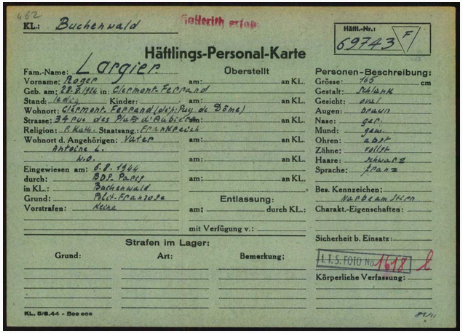 662
KL.: Buchenwald
Hollerith erfaßt
Häftl.-Nr.:
69743 F
Häftlings-Personal-Karte
Fam.-Name: Largier
Überstellt
Personen-Beschreibung:
Vorname: Roger
am: an KL.
Grösse: 165 cm
Geb. am 1926 in Clermont Ferrand
Gestalt: schlank
Stand: ledig Kinder:
am: an KL.
Gesicht: oval
Wohnort: Clermont Ferrand (dep. Puy de Dôme)
Augen: braun
Strasse: 34 rue des Plats
am: an KL.
Nase: ger.
Religion: r. Kath. Staatsang.: Frankreich
Mund: gew.
Wohnort d. Angehörigen: Vater
am: an KL.
Ohren:
Antoine L.
Zähne: vollst
w.o.
am: an KL.
Haare: schwarz
Eingewiesen am: 6.8.1944
Sprache: franz
durch: BDS. Paris
am: an KL.
in KL.: Buchenwald
Bes. Kennzeichen:
Grund: Polit-Franzose
Entlassung:
Narbe am Stirn
Vorstrafen: keine
am: durch KL.:
Charakt.-Eigenschaften:
mit Verfügung v.:
Strafen im Lager:
Sicherheit b. Einsatz:
Grund: Art: Bemerkung:
I.T.S. FOTO No 1618
Körperliche Verfassung: